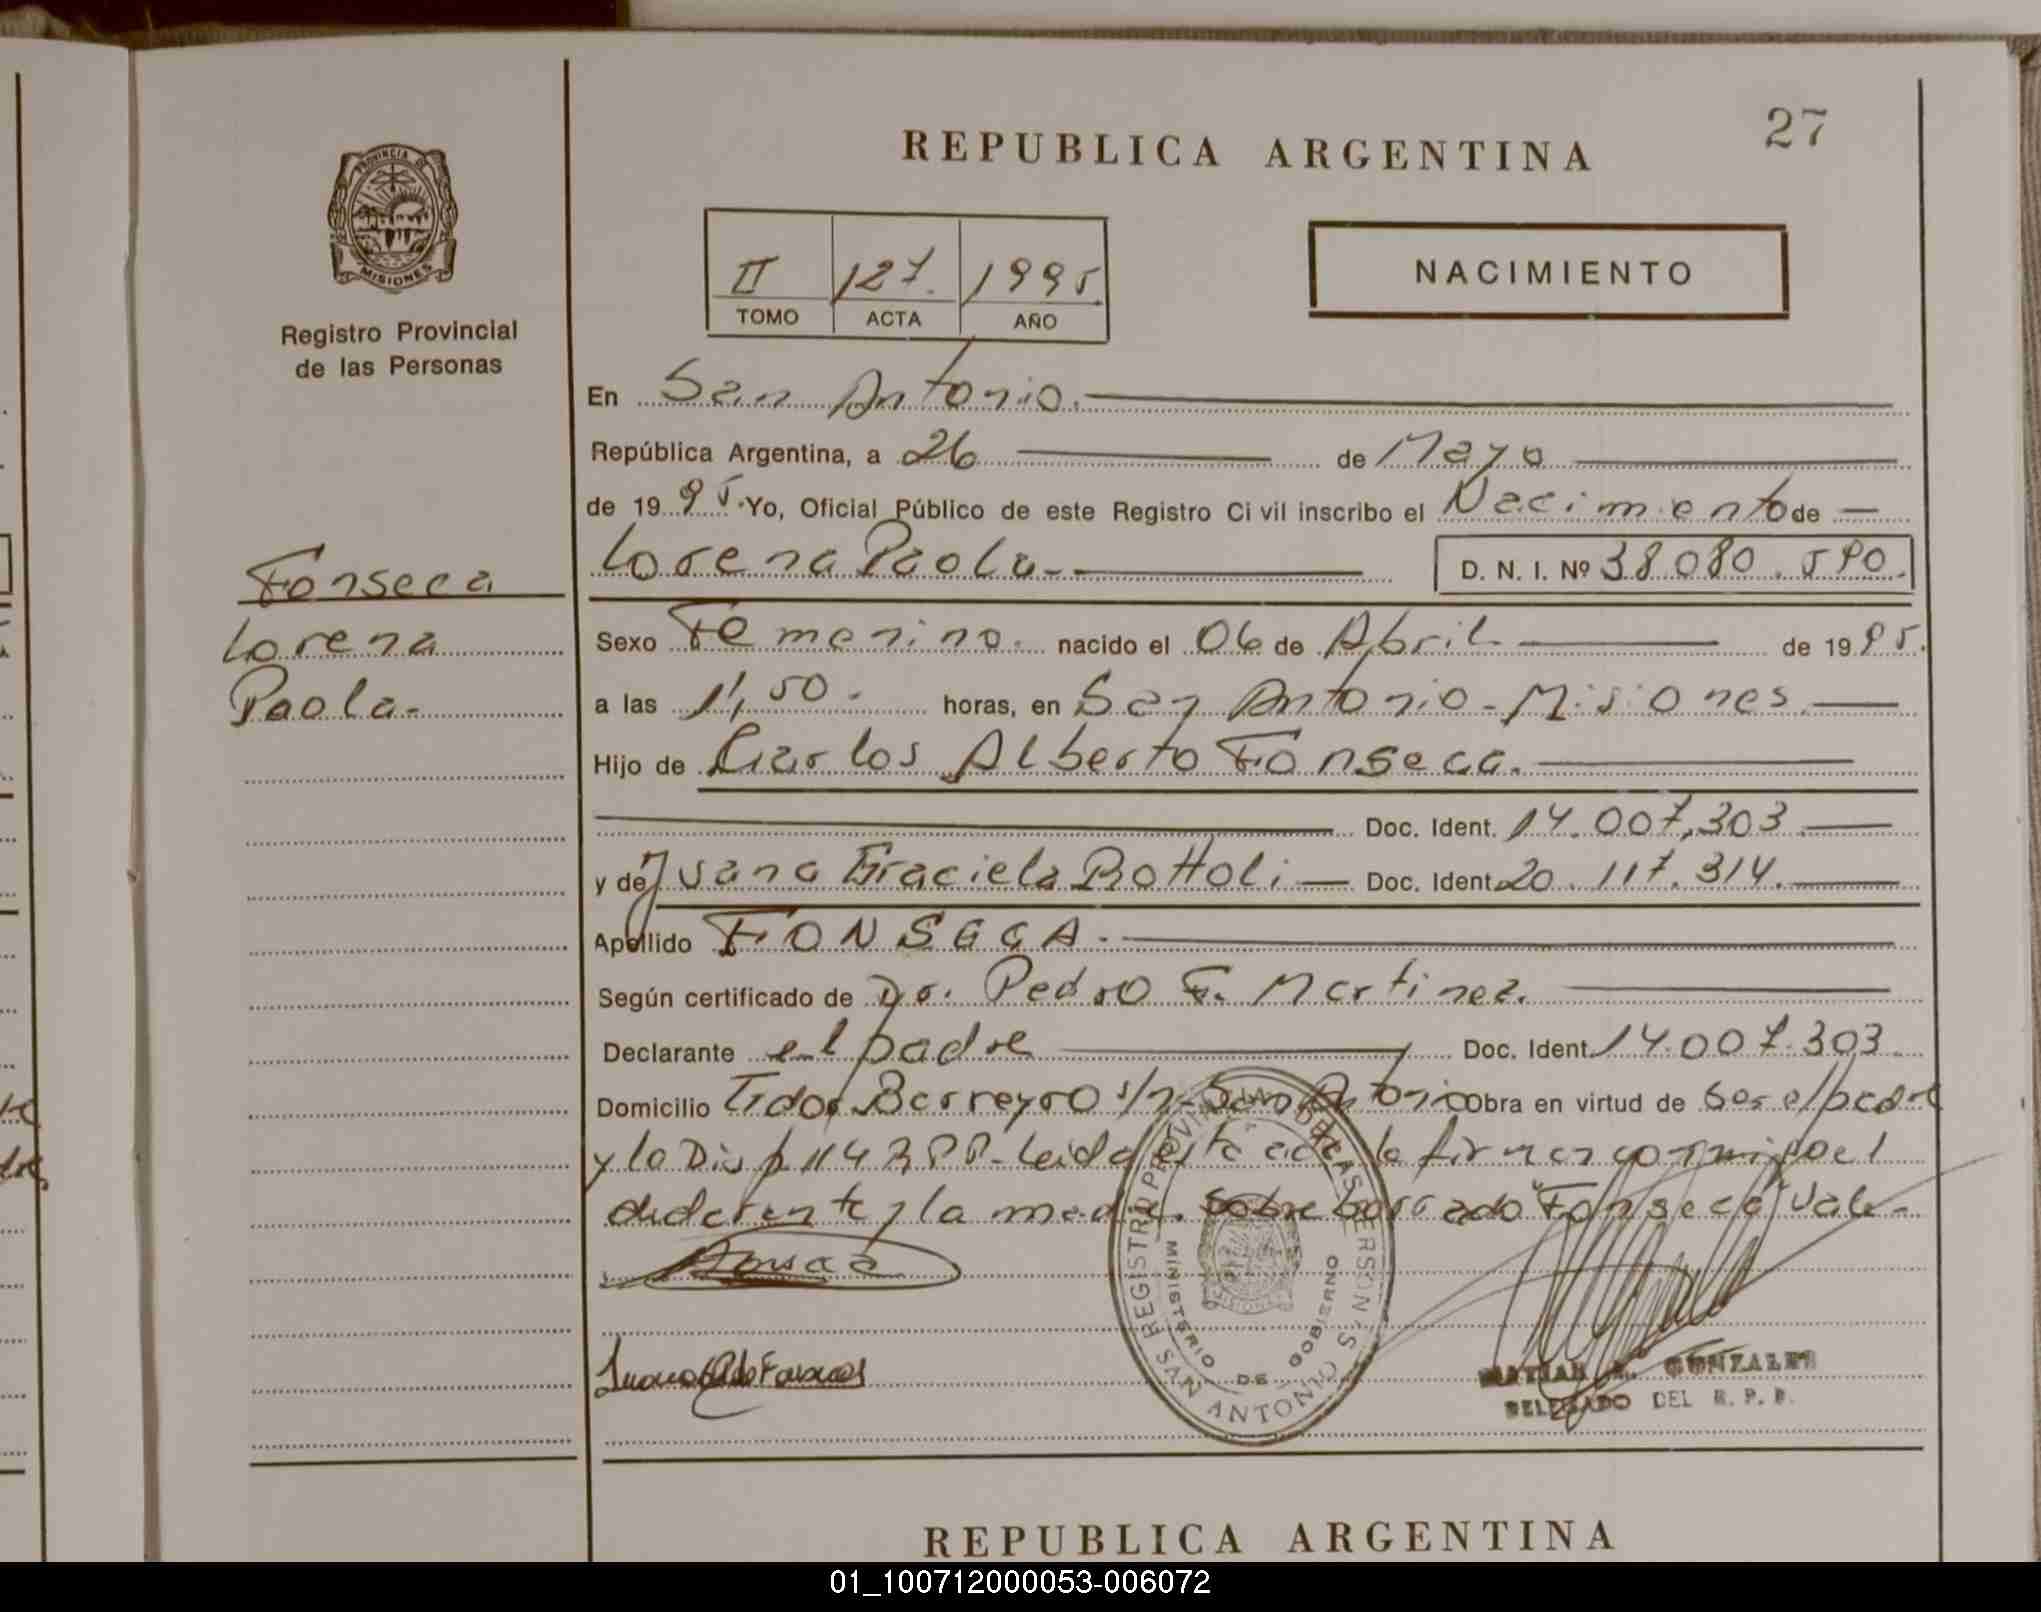 27
REPUBLICA ARGENTINA
PROVINCIA DE MISIONES
Registro Provincial
de las Personas
II 127. 1995
TOMO ACTA AÑO
NACIMIENTO
En San Antonio.
República Argentina, a 26 de Mayo
de 1995. Yo, Oficial Público de este Registro Civil inscribo el Nacimiento de
Lorena Paola D. N. I. Nº 38.080.590.
Fonseca
Lorena
Paola.
Sexo Femenino. nacido el 06 de Abril de 1995.
a las 11,50. horas, en San Antonio - Misiones.
Hijo de Carlos Alberto Fonseca.
Doc. Ident. 14.007.303
y de Juana Graciela Bottoli Doc. Ident. 20.117.314.
Apellido FONSECA.
Según certificado de Dr. Pedro G. Martinez.
Declarante el padre Doc. Ident. 14.007.303.
Domicilio Fdor. Barreyro s/n - San Antonio Obra en virtud de ser el padre
y la Leida esta acta la firman conmigo el
declarante y la madre. Sobre borrado "Fonseca" Vale.
REGISTRO PROVINCIAL DE LAS PERSONAS
MINISTERIO DE GOBIERNO
SAN ANTONIO
GONZALEZ
DELEGADO DEL R. P. P.
REPUBLICA ARGENTINA
01_100712000053-006072